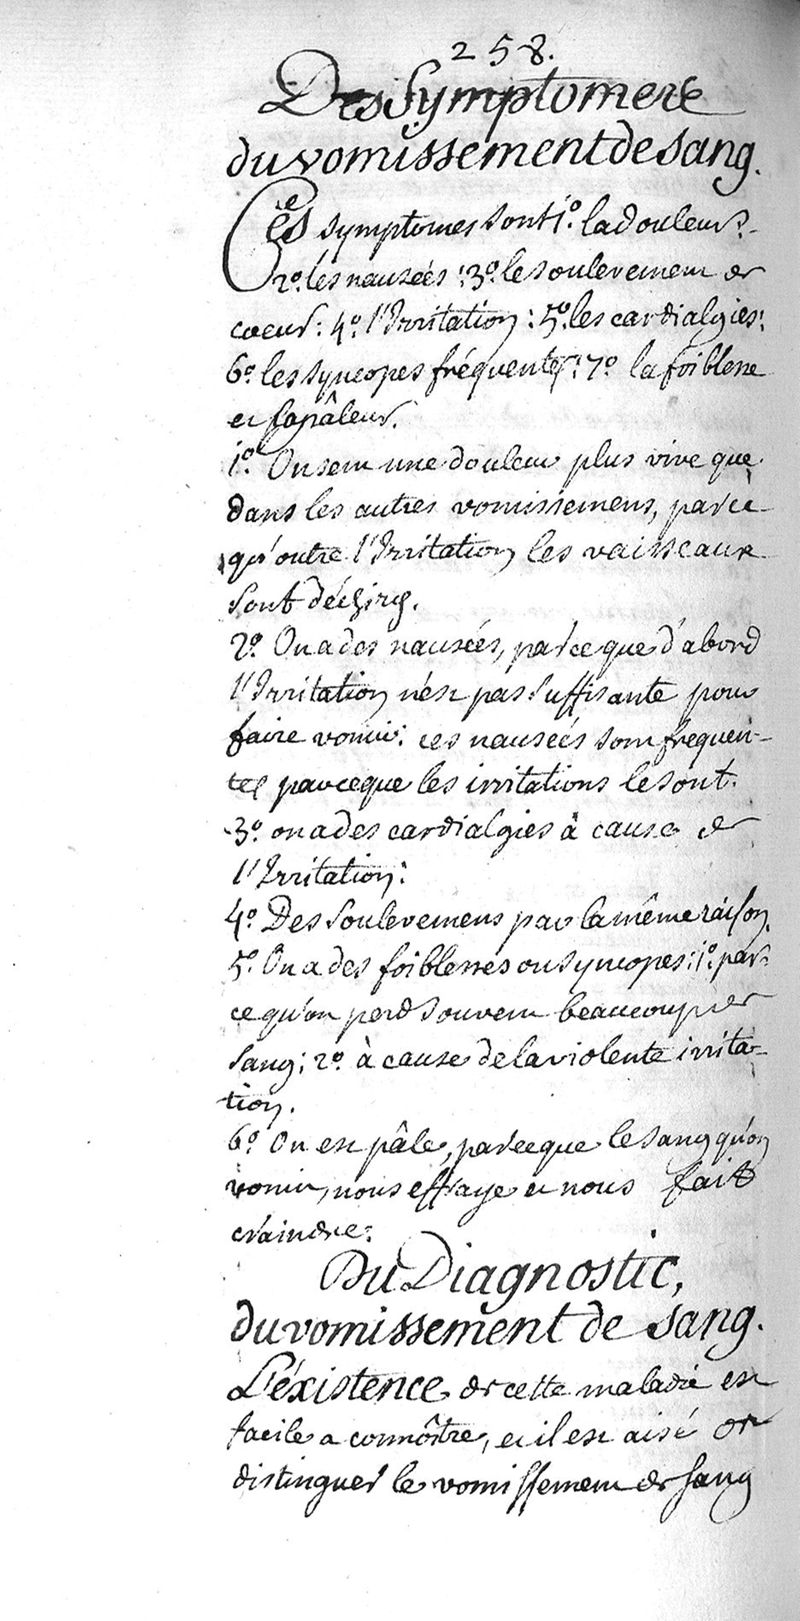 258.
Des Symptomese
du vomissement de sang.
Ces symptomes sont 1º. la douleur:
2º. les nauseés: 3º. le soulevement de
coeur: 4º. l'Irritation: 5º. les cardialgies:
6º. les syncopes fréquentes: 7º. la foiblesse
et la pâleur.
1º. On sent une douleur plus vive que
dans les autres vomissemens, parce
qu'outre l'Irritation les vaisseaux
sont déchirés.
2º. On a des nauseés, parceque d'abord
l'Irritation n'est pas suffisante pour
faire vomir: ces nauseés sont frequen-
tes parceque les irritations le sont.
3º. on a des cardialgies à cause de
l'Irritation:
4º. Des soulevemens par la même raison.
5º. On a des foiblesses ou syncopes: 1º. par-
ce qu'on perd souvent beaucoup de
sang; 2º. à cause de la violente irrita-
tion.
6º. On est pâle, parceque le sang qu'on
vomit, nous effraye et nous fait
craindre:
Du Diagnostic,
du vomissement de sang.
L'éxistence de cette maladie est
facile a connôitre, et il est aisé de
distinguer le vomissement de sang